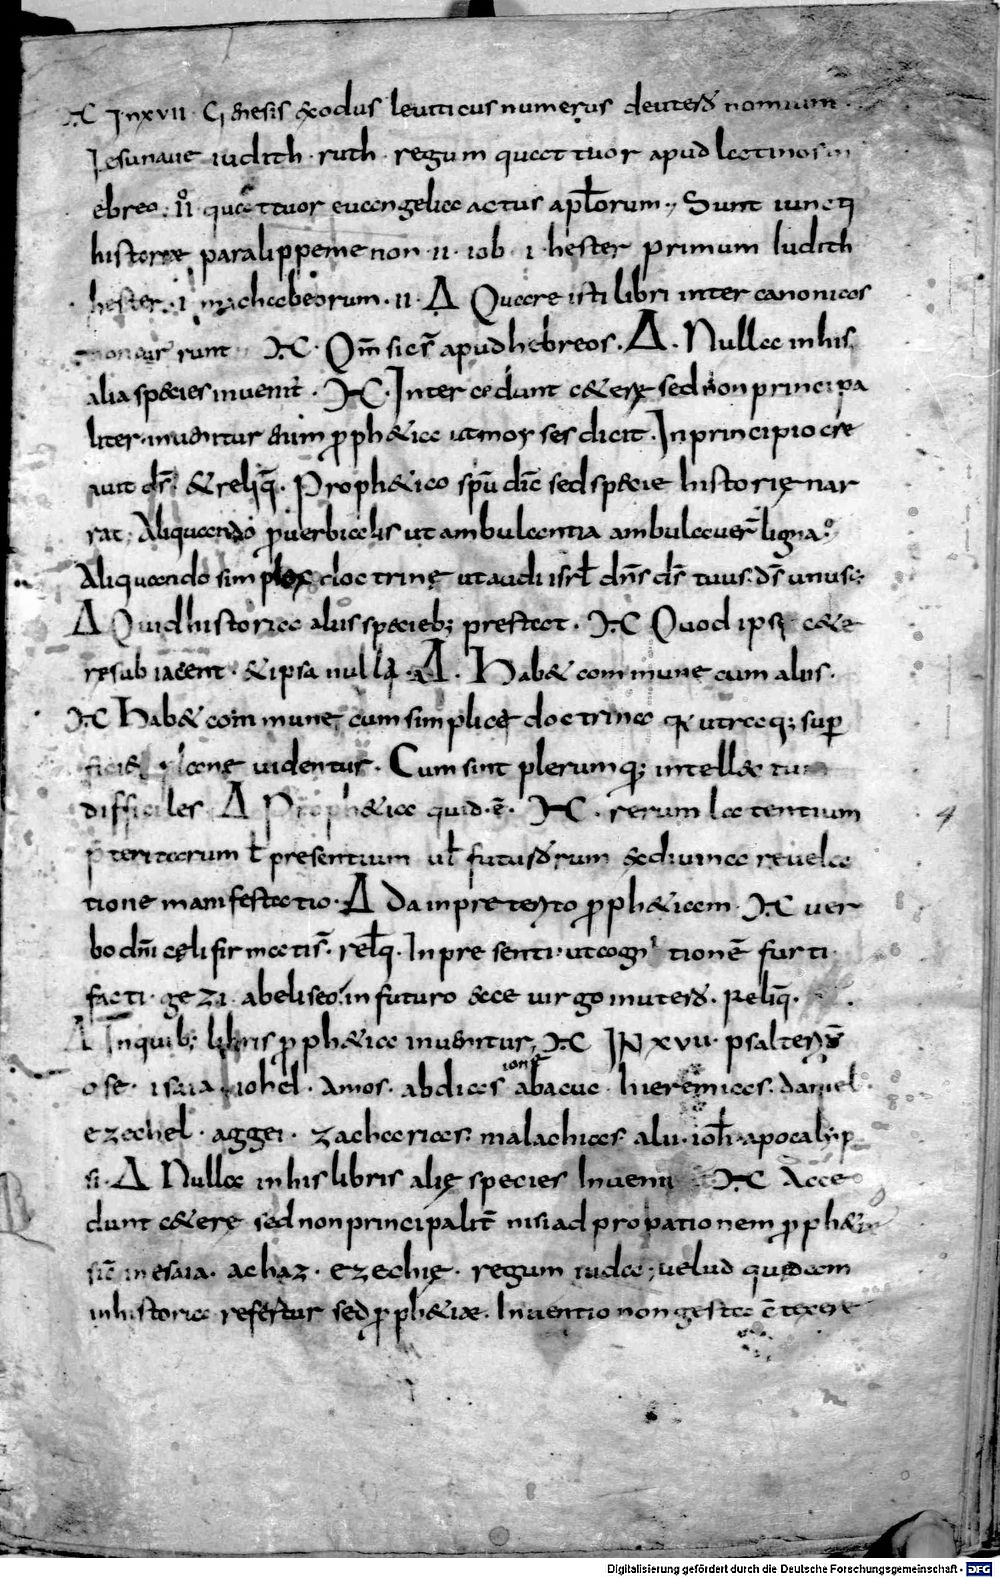 ꝯ Jnxvii · Genesis exodus leuiticus numerus deuterō nomium ·
Iesunaue iudith · ruth · regum quattuor apud latinos in
ebreo · ii · quattuor euangelica actus apl̅orum ·, Sunt iuncti
historiae paralippemenon · ii · iob · i · hester primum Iudith
hester · i · machabeorum · ii · Δ Quare isti libri inter canonicos
runt X · Qm̅ sic r̅ apud hebreos . Δ . Nulla in his
alia species inuenit̅ . X . Inter cedunt &ere sed non principa
liter · inuenitur enim proph&ica ut moyses dicit . In principio cre
auit ds̅ · & reliq̅ . Proph&ico spu̅ dic̅ sed specie historię nar
rat; Aliquando prouerbialis ut ambulantia ambulauer̅ ligna ·
Aliquando simplex doctrinę ut audi isrl̅ dn̅s ds̅ tuus · ds̅ unus ·;
Δ Quid historica aliis specieb; prestat . X Quod ipsę c&e
re subiacent · & ipsa nulli . Δ . Hab& commune cum aliis .
X Hab& commune cum simplice doctrina q utraq; sup
uidentur . Cum sint plerumq; intellectu
difficiles Δ Proph&ica quid · ē . X . rerum latentium
p̅teritarum l̅ presentium ul̅ futurarum & diuina reuela
tione manifestatio · Δ Da inpreterito proph&iam . X uer
bo dn̅i cęli firmatis̅ · relq̅ . Inpresenti · ut cogni tionē furti
facti · gezi · abeliseo in futuro ecce uirgo in uterō . Reliq̅ .
Δ Inquib; libris proph&ica inuenitur, X JN xvii · psalteriū
ose · isaia · iohel · Amos · abdias iona abacuc · hieremias · daniel
ezechel · aggei · zacharias · malachias · alii · ioh̅ · apocalyp
si · Δ Nulla in his libris alię species Inueni X Acce
dunt c&erę sed non principalit̅ nisi ad propationem proph&ię
sic̅ in esaia · achaz · ezechię · regum iuda; uelud quędam
inhistorica refertur sed proph&iae . Inuentio non gesta ē texere
4
Digitalisierung gefördert durch die Deutsche Forschungsgemeinschaft - DFG